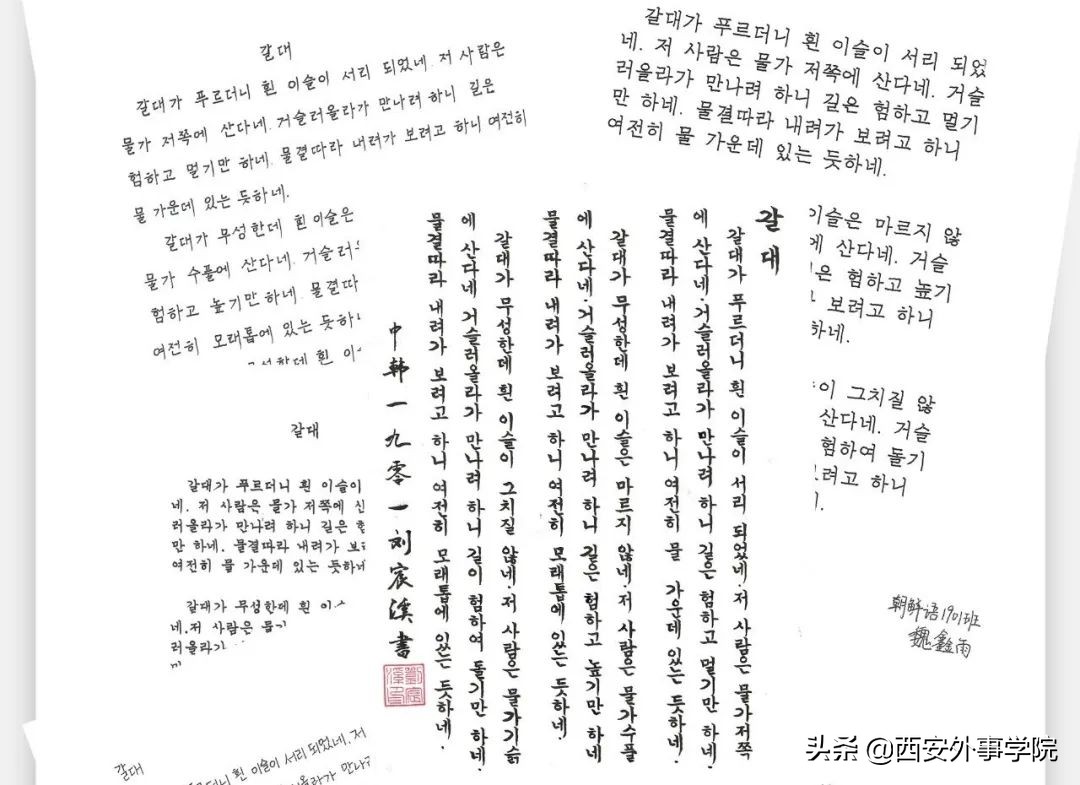 갈대
갈대가 푸르더니 흰 이슬이 서리 되었네. 저 사람은
물가 저쪽에 산다네. 거슬러올라가 만나려 하니 길은
험하고 멀기만 하네. 물결따라 내려가 보려고 하니 여전히
물 가운데 있는 듯하네.
갈대가 무성한데 흰 이슬은
물가 수풀에 산다네. 거슬러
험하고 높기만 하네. 물결따
여전히 모래톱에 있는 듯하
갈대가 푸르더니 흰 이슬이 서리 되었
네. 저 사람은 물가 저쪽에 산다네. 거슬
러올라가 만나려 하니 길은 험하고 멀기
만 하네. 물결따라 내려가 보려고 하니
여전히 물 가운데 있는 듯하네.
이슬은 마르지 않
에 산다네. 거슬
은 험하고 높기
보려고 하니
하네.
이 그치질 않
산다네. 거슬
험하여 돌기
려고 하니
갈대
갈대가 푸르더니 흰 이슬이 서리 되었네. 저 사람은 물가 저쪽
에 산다네. 거슬러올라가 만나려 하니 길은 험하고 멀기만 하네.
물결따라 내려가 보려고 하니 여전히 물 가운데 있는 듯하네.
갈대가 무성한데 흰 이슬은 마르지 않네. 저 사람은 물가 수풀
에 산다네. 거슬러올라가 만나려 하니 길은 험하고 높기만 하네
물결따라 내려가 보려고 하니 여전히 모래톱에 있는 듯하네.
갈대가 무성한데 흰 이슬이 그치질 않네. 저 사람은 물가 기슭
에 산다네. 거슬러올라가 만나려 하니 길이 험하여 돌기만 하네.
물결따라 내려가 보려고 하니 여전히 모래톱에 있는 듯하네.
中韩一九零一刘宸溪書
갈대
갈대가 푸르더니 흰 이슬이
네. 저 사람은 물가 저쪽에
러올라가 만나려 하니 길은
만 하네. 물결따라 내려가
여전히 물 가운데 있는 듯하네
갈대가 무성한데 흰 이
네. 저 사람은 물가
러올라가
朝鲜语1901班
魏鑫雨
갈대
흰 이슬이 서리 되었네. 저
만나
头条 @西安外事学院